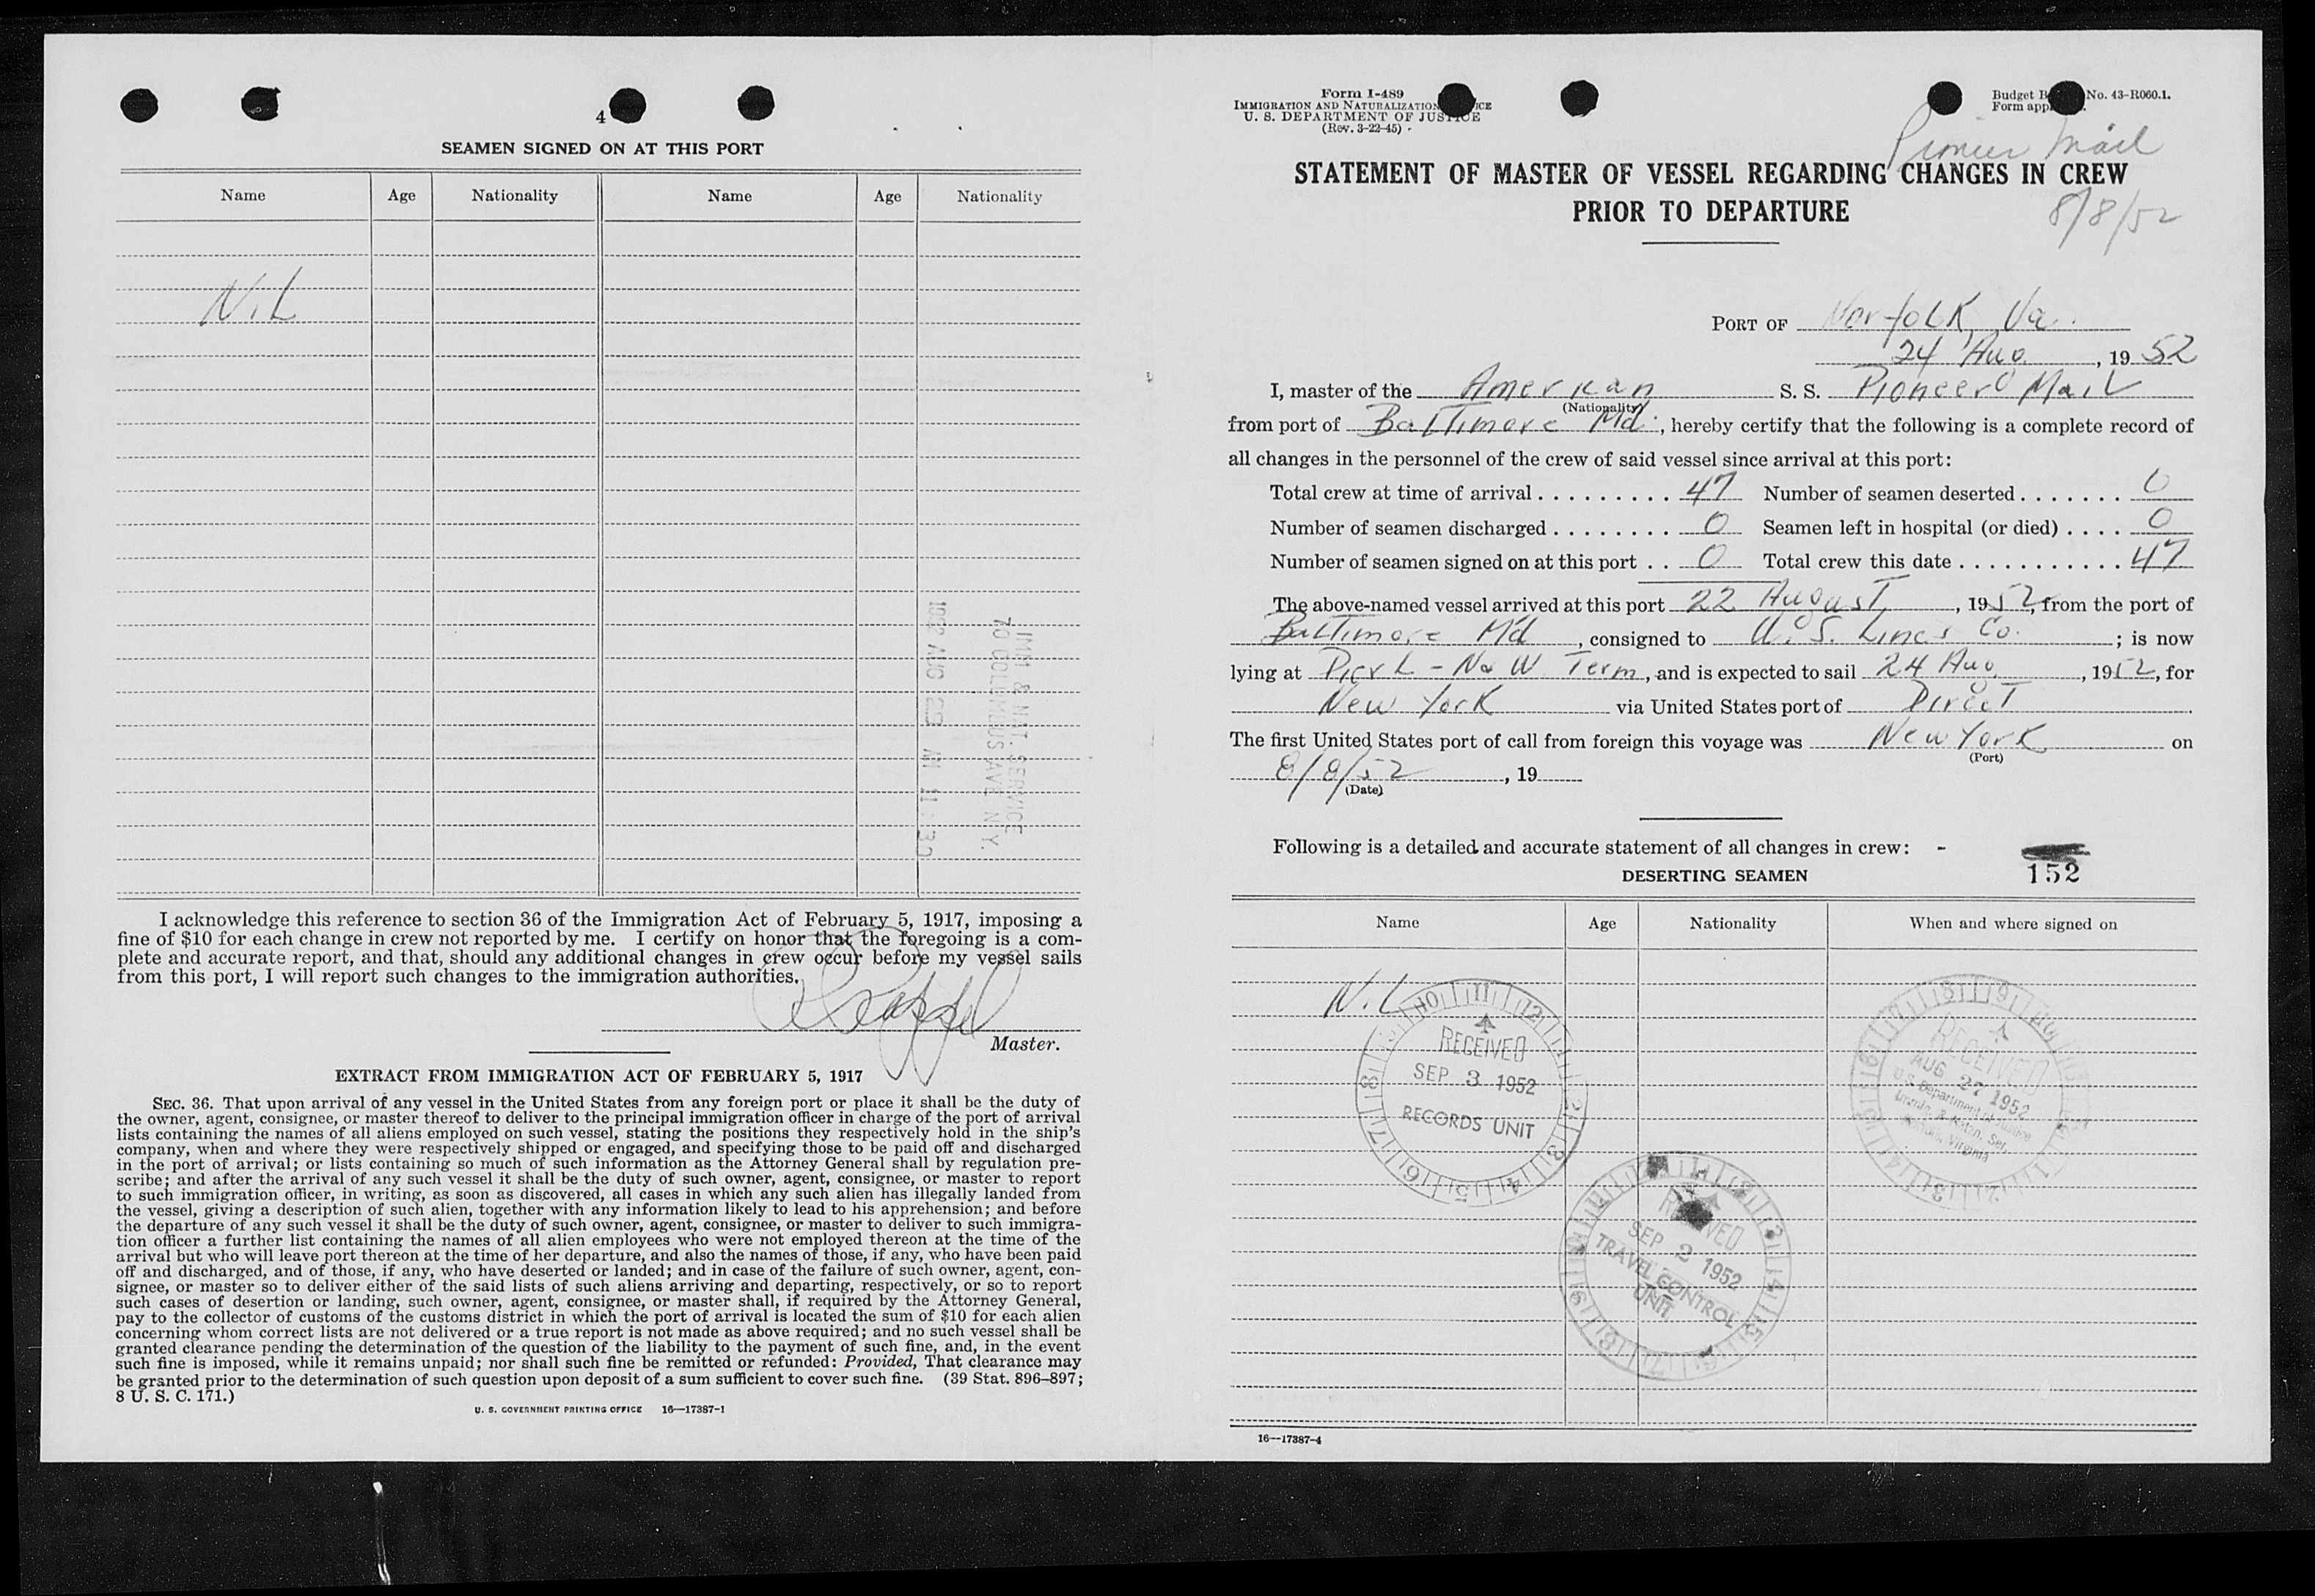 4
SEAMEN SIGNED ON AT THIS PORT
Name Age Nationality Name Age Nationality
NiL
IMM & NAT. SERVICE
70 COLUMBUS AVE N.Y.
1952 AUG 29 AM 11:30
I acknowledge this reference to section 36 of the Immigration Act of February 5, 1917, imposing a
fine of $10 for each change in crew not reported by me. I certify on honor that the foregoing is a com-
plete and accurate report, and that, should any additional changes in crew occur before my vessel sails
from this port, I will report such changes to the immigration authorities.
Master.
EXTRACT FROM IMMIGRATION ACT OF FEBRUARY 5, 1917
SEC. 36. That upon arrival of any vessel in the United States from any foreign port or place it shall be the duty of
the owner, agent, consignee, or master thereof to deliver to the principal immigration officer in charge of the port of arrival
lists containing the names of all aliens employed on such vessel, stating the positions they respectively hold in the ship's
company, when and where they were respectively shipped or engaged, and specifying those to be paid off and discharged
in the port of arrival; or lists containing so much of such information as the Attorney General shall by regulation pre-
scribe; and after the arrival of any such vessel it shall be the duty of such owner, agent, consignee, or master to report
to such immigration officer, in writing, as soon as discovered, all cases in which any such alien has illegally landed from
the vessel, giving a description of such alien, together with any information likely to lead to his apprehension; and before
the departure of any such vessel it shall be the duty of such owner, agent, consignee, or master to deliver to such immigra-
tion officer a further list containing the names of all alien employees who were not employed thereon at the time of the
arrival but who will leave port thereon at the time of her departure, and also the names of those, if any, who have been paid
off and discharged, and of those, if any, who have deserted or landed; and in case of the failure of such owner, agent, con-
signee, or master so to deliver either of the said lists of such aliens arriving and departing, respectively, or so to report
such cases of desertion or landing, such owner, agent, consignee, or master shall, if required by the Attorney General,
pay to the collector of customs of the customs district in which the port of arrival is located the sum of $10 for each alien
concerning whom correct lists are not delivered or a true report is not made as above required; and no such vessel shall be
granted clearance pending the determination of the question of the liability to the payment of such fine, and, in the event
such fine is imposed, while it remains unpaid; nor shall such fine be remitted or refunded: Provided, That clearance may
be granted prior to the determination of such question upon deposit of a sum sufficient to cover such fine. (39 Stat. 896–897;
8 U. S. C. 171.)
U. S. GOVERNMENT PRINTING OFFICE 16—17387-1
Form I-489
IMMIGRATION AND NATURALIZATION
U. S. DEPARTMENT OF JUSTICE
(Rev. 3-22-45)
Budget No. 43-R060.1.
Form
Pioneer Mail
STATEMENT OF MASTER OF VESSEL REGARDING CHANGES IN CREW
PRIOR TO DEPARTURE
8/8/52
PORT OF Norfolk, Va.
24 Aug, 1952
I, master of the American S. S. Pioneer Mail
(Nationality)
from port of Baltimore Md., hereby certify that the following is a complete record of
all changes in the personnel of the crew of said vessel since arrival at this port:
Total crew at time of arrival 47 Number of seamen deserted 0
Number of seamen discharged 0 Seamen left in hospital (or died) 0
Number of seamen signed on at this port 0 Total crew this date 47
The above-named vessel arrived at this port 22 August, 1952, from the port of
Baltimore Md, consigned to U.S. Lines Co.; is now
lying at Pier L - N & W Term, and is expected to sail 24 Aug, 1952, for
New York via United States port of Direct
The first United States port of call from foreign this voyage was New York on
(Port)
8/8/52, 19
(Date)
Following is a detailed and accurate statement of all changes in crew: -
DESERTING SEAMEN 152
Name Age Nationality When and where signed on
NiL
RECEIVED
SEP 3 1952
RECORDS UNIT
RECEIVED
AUG 27 1952
U.S. Department of Justice
Virginia
RECEIVED
SEP 2 1952
TRAVEL CONTROL
UNIT
16—17387-4